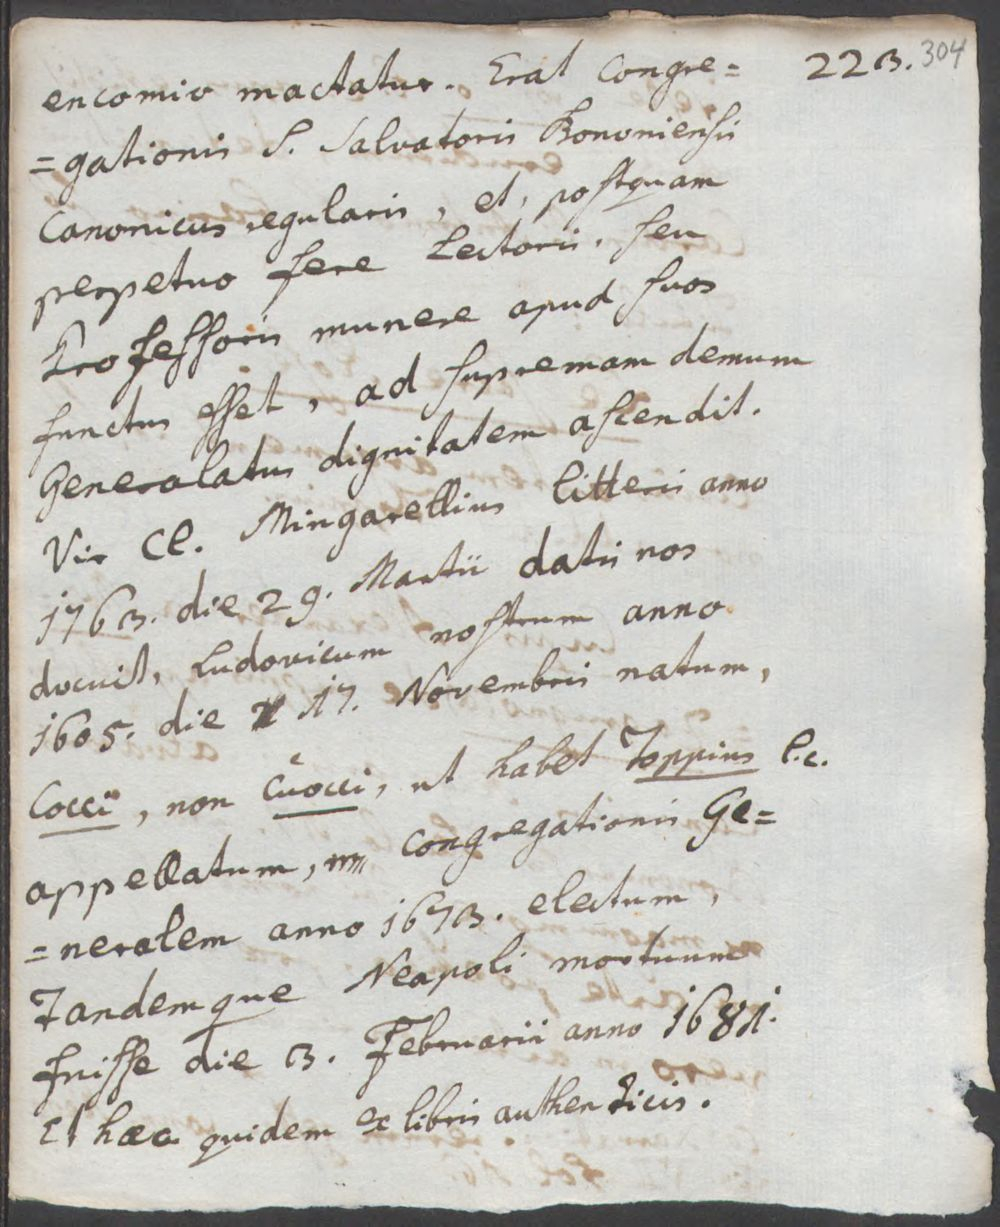 223. 304
encomio mactatur. Erat Congre=
=gationis S. Salvatoris Bononiensis
Canonicus regularis, et, postquam
perpetuo fere Lectoris, seu
Professoris munere apud suos
functus esset, ad supremam demum
Generalatus dignitatem ascendit.
Vir Cl. Mingarellius litteris anno
1763. die 29. Martii datis nos
docuit, Ludovicum nostrum anno
1605. die 17. Novembris natum,
Cocci, non Cuocci, ut habet Toppius l.c.
appellatum, Congregationis Ge=
=neralem anno 1673. electum,
Tandemque Neapoli mortuum
fuisse die 3. Februarii anno 1681.
Et haec quidem ex libris authenticis.